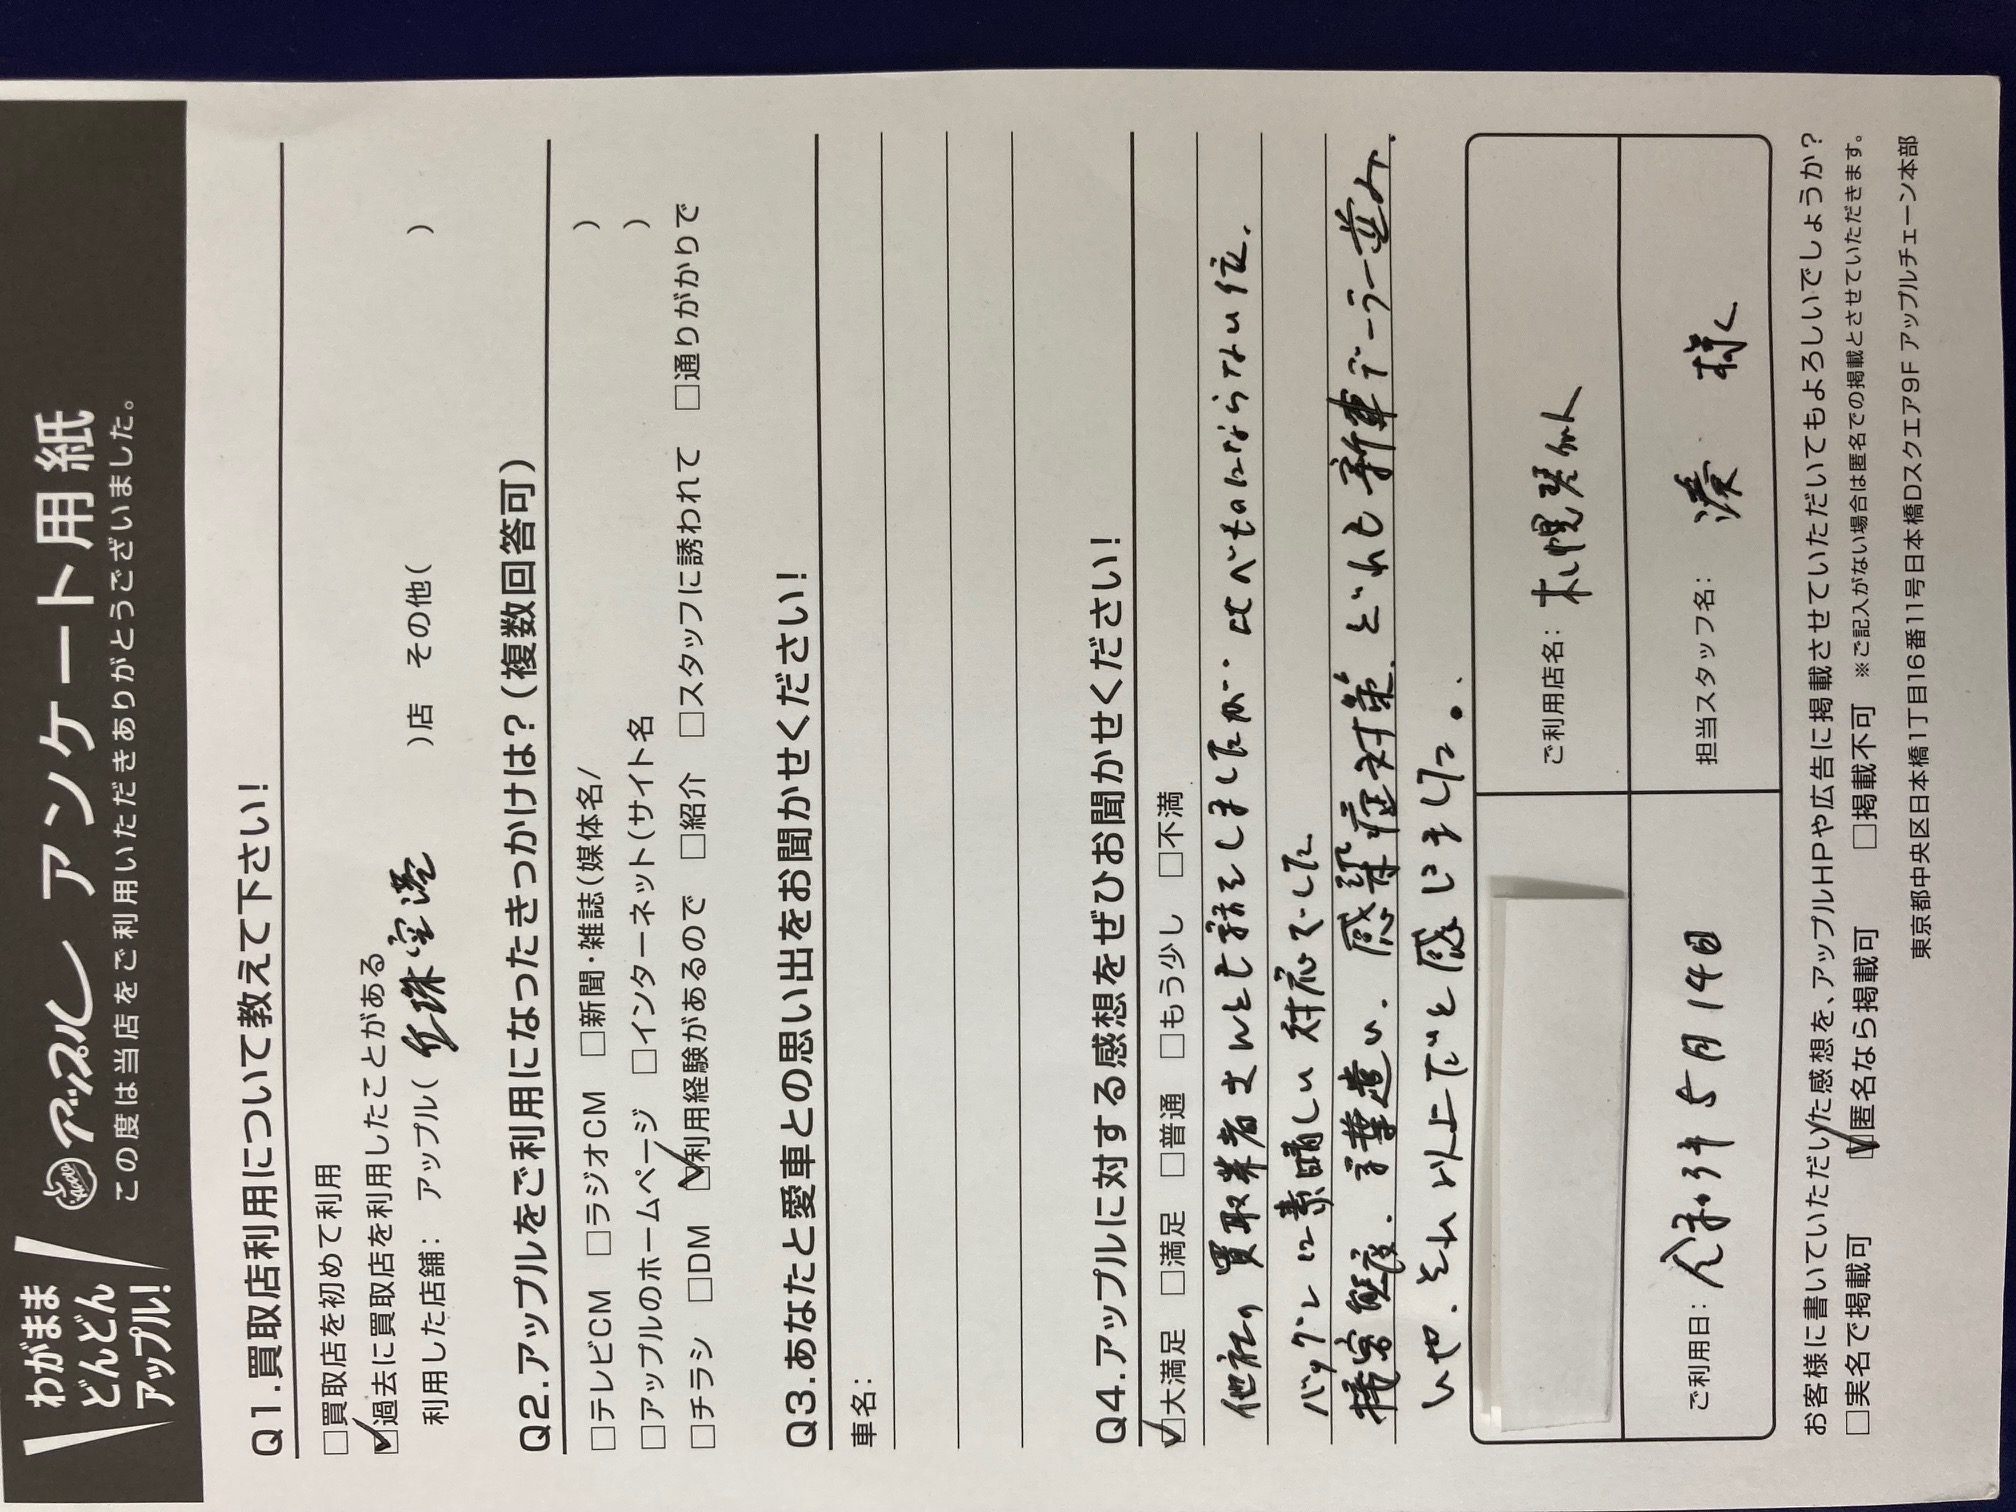 わがまま
どんどん
アップル!
Apple アップル アンケート用紙
この度は当店をご利用いただきありがとうございました。
Q1.買取店利用について教えて下さい!
□買取店を初めて利用
☑過去に買取店を利用したことがある
利用した店舗: アップル( 丘珠空港 )店 その他( )
Q2.アップルをご利用になったきっかけは?(複数回答可)
□テレビCM □ラジオCM □新聞・雑誌(媒体名/ )
□アップルのホームページ □インターネット(サイト名 )
□チラシ □DM ☑利用経験があるので □紹介 □スタッフに誘われて □通りがかりで
Q3.あなたと愛車との思い出をお聞かせください!
車名:
Q4.アップルに対する感想をぜひお聞かせください!
☑大満足 □満足 □普通 □もう少し □不満
他社の買取業者さんとも話をしましたが‥比べものにならない位、
バツグンに素晴しい対応でした
接客態度、言葉遣い、感染症対策、どれも新車ディーラー並み、
いや、それ以上だと感じました。
ご利用店名: 札幌琴似
ご利用日: 令和3年5月14日
担当スタッフ名: 湊 様
お客様に書いていただいた感想を、アップルHPや広告に掲載させていただいてもよろしいでしょうか?
□実名で掲載可 ☑匿名なら掲載可 □掲載不可 ※ご記入がない場合は匿名での掲載とさせていただきます。
東京都中央区日本橋1丁目16番11号日本橋Dスクエア9F アップルチェーン本部